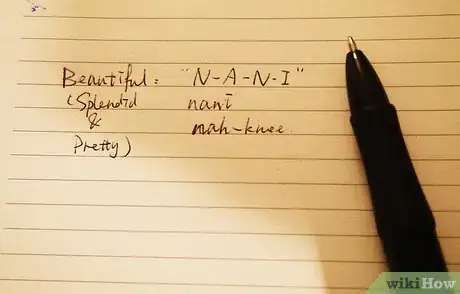 Beautiful: "N-A-N-I"
(Splendid nani
& mah-knee.
Pretty)
wikiHow